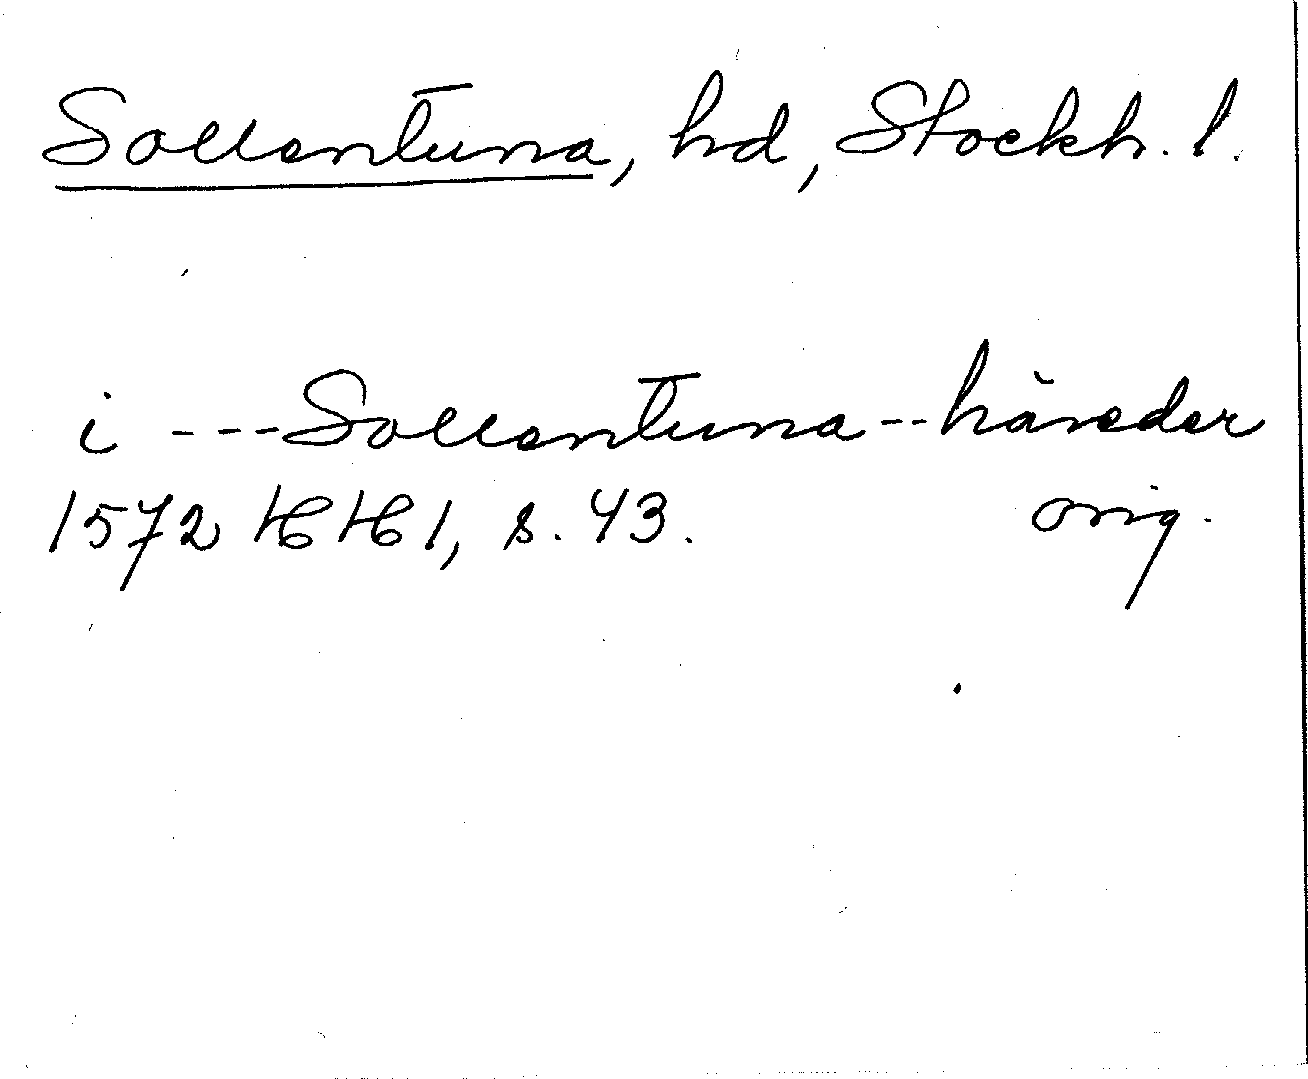 Sollentuna, hd, Stockh. l.
i --- Sollentuna -- häreder
1572 HH 1, s. 43. orig.